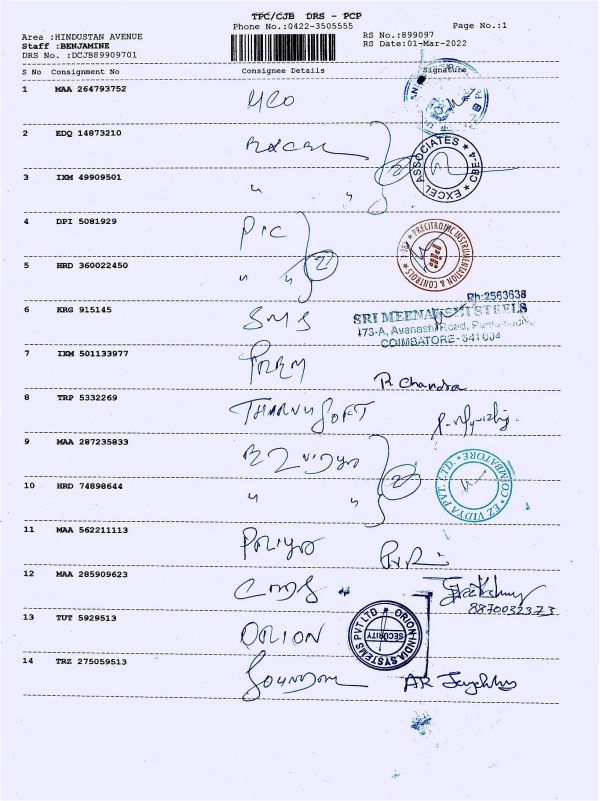 TPC/CJB DRS - PCP
Phone No.:0422-3505555
Page No.:1
Area :HINDUSTAN AVENUE
RS No.:899097
Staff :BENJAMINE
RS Date:01-Mar-2022
DRS No. :DCJB89909701
S No Consignment No Consignee Details Signature
1 MAA 264793752
2 EDQ 14873210 Excel
EXCEL ASSOCIATES ★ CBE-4 ★
3 IXM 49909501 " "
4 DPI 5081929 PIC
PRECITRONIC INSTRUMENTATION & CONTROLS
5 HRD 360022450 " " 2
Ph:2563638
6 KRG 915145 SMS
SRI MEENAKSHI STEELS
173-A, Avanashi Road,
COIMBATORE-641004
7 IXM 501133977 PREM
R Chandra
8 TRP 5332269 THARNUSOFT
9 MAA 287235833 EZ Vidya
EZ VIDYA PVT. LTD. COIMBATORE
10 HRD 74898644 " " 2
11 MAA 562211113 Priya
12 MAA 285909623
8870032373
13 TUT 5929513 ORION
ORION INDIA SYSTEMS PVT LTD ★
SECURITY
14 TRZ 275059513
AR